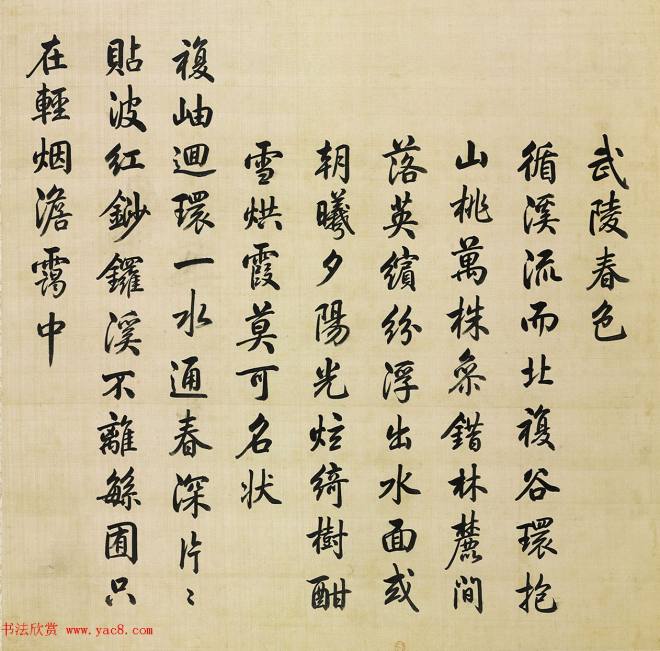 武陵春色
循溪流而北複谷環抱
山桃萬株叅錯林麓間
落英繽紛浮出水面或
朝曦夕陽光炫綺樹酣
雪烘霞莫可名状
複岫迴環一水通春深片〻
貼波紅鈔鑼溪不離繇圃只
在輕烟澹靄中
书法欣赏 www.yac8.com